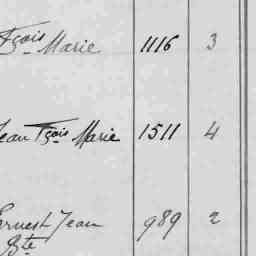 Fçois Marie 1116 3
Jean Fçois Marie 1511 4
Ernest Jean 989 2
Bte